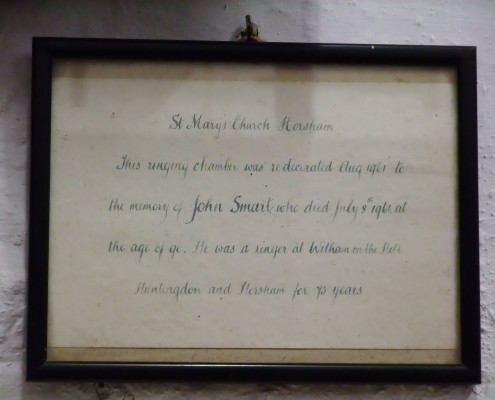 St Mary's Church Horsham
This ringing chamber was redecorated Aug 1961 to
the memory of John Smart who died July 8th 1961 at
the age of 90. He was a ringer at Witham on the
Huntingdon and Horsham for 73 years